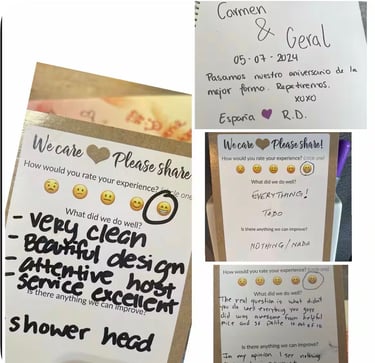 We care Please share
How would you rate your experience? (circle one)
What did we do well?
- very clean
- Beautiful design
- attentive host
- service excellent
Is there anything we can improve?
shower head
Carmen
& Geral
05-07-2024
Pasamos nuestro aniversario de la
mejor forma. Repetiremos.
xoxo
España R.D.
We care Please share!
How would you rate your experience? (circle one)
What did we do well?
EVERYTHING!
TODO
Is there anything we can improve?
NOTHING/NADA
How would you rate your experience? (circle one)
What did we do well?
The real question is what didn't
you do well everything you guys
did was awesome from helpful
nice and so polite
Is there anything we can improve?
In my opinion I see nothing